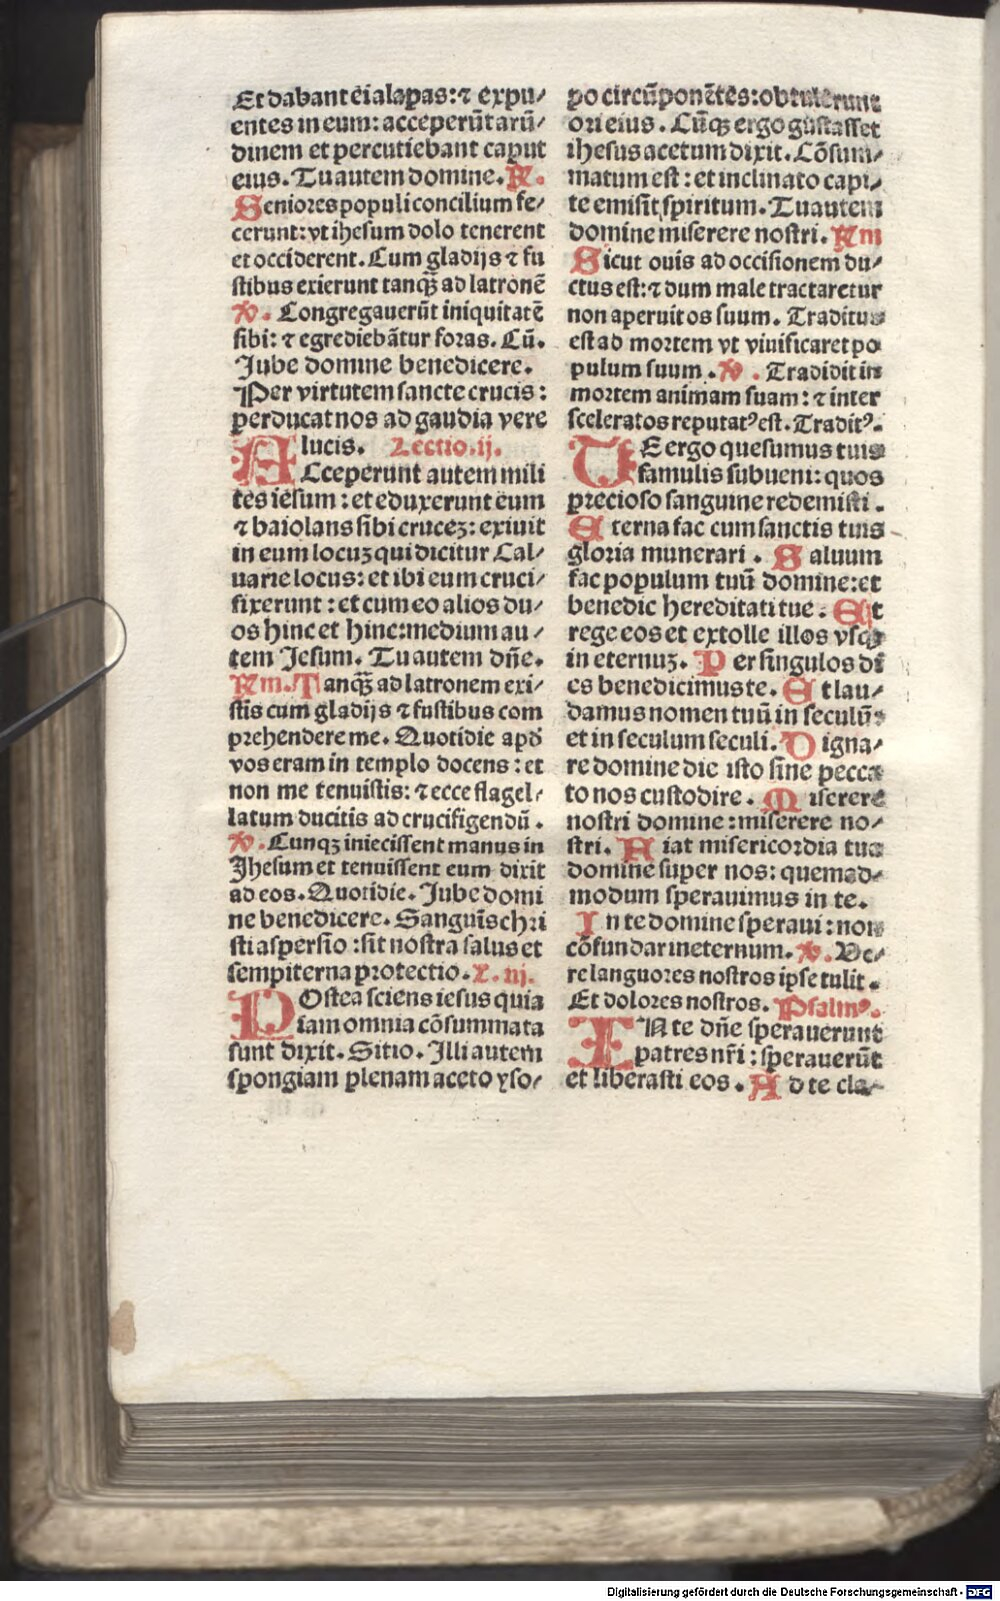 Et dabant ei alapas: ⁊ expu⸗
entes in eum: acceperūt arū⸗
dinem et percutiebant caput
eius. Tu autem domine. R.
Seniores populi concilium fe⸗
cerunt: vt ihesum dolo tenerent
et occiderent. Cum gladijs ⁊ fu
stibus exierunt tanqȝ̄ ad latronē
V. Congregauerūt iniquitatē
sibi: ⁊ egrediebātur foras. Cū.
Jube domine benedicere.
Per virtutem sancte crucis:
perducat nos ad gaudia vere
lucis. Lectio. ij.
ACceperunt autem mili
tes iesum: et eduxerunt eum
⁊ baiolans sibi cruceȝ: exiuit
in eum locuȝ qui dicitur Cal⸗
uarie locus: et ibi eum cruci⸗
fixerunt: et cum eo alios du⸗
os hinc et hinc: medium au⸗
tem Jesum. Tu autem dn̄e.
Rm. Tanqȝ̄ ad latronem exi⸗
stis cum gladijs ⁊ fustibus com
prehendere me. Quotidie apd̄
vos eram in templo docens: et
non me tenuistis: ⁊ ecce flagel⸗
latum ducitis ad crucifigendū.
V. Cunqȝ iniecissent manus in
Jhesum et tenuissent eum dixit
ad eos. Quotidie. Jube domi
ne benedicere. Sanguis̄ chri
sti aspersio: sit nostra salus et
sempiterna protectio. L. iij.
POstea sciens iesus quia
iam omnia cōsummata
sunt dixit. Sitio. Illi autem
spongiam plenam aceto yso⸗
po circūponētes: obtulerunt
ori eius. Cūqȝ ergo gustasset
ihesus acetum dixit. Cōsum⸗
matum est: et inclinato capi⸗
te emisit spiritum. Tu autem
domine miserere nostri. Rm
Sicut ouis ad occisionem du⸗
ctus est: ⁊ dum male tractaretur
non aperuit os suum. Traditus
est ad mortem vt viuificaret po
pulum suum. V. Tradidit in
mortem animam suam: ⁊ inter
sceleratos reputatꝰ est. Traditꝰ.
TE ergo quesumus tuis
famulis subueni: quos
precioso sanguine redemisti.
Eterna fac cum sanctis tuis
gloria munerari. Saluum
fac populum tuū domine: et
benedic hereditati tue. Et
rege eos et extolle illos vsqȝ
in eternuȝ. Per singulos di
es benedicimus te. Et lau⸗
damus nomen tuū in seculū:
et in seculum seculi. Digna⸗
re domine die isto sine pecca
to nos custodire. Miserere
nostri domine: miserere no⸗
stri. Fiat misericordia tua
domine super nos: quemad⸗
modum sperauimus in te.
In te domine speraui: non
cōfundar in eternum. V. Ve⸗
re languores nostros ipse tulit.
Et dolores nostros. Psalmꝰ.
IN te dn̄e sperauerunt
patres nr̄i: sperauerūt
et liberasti eos. Ad te cla⸗
Digitalisierung gefördert durch die Deutsche Forschungsgemeinschaft - DFG